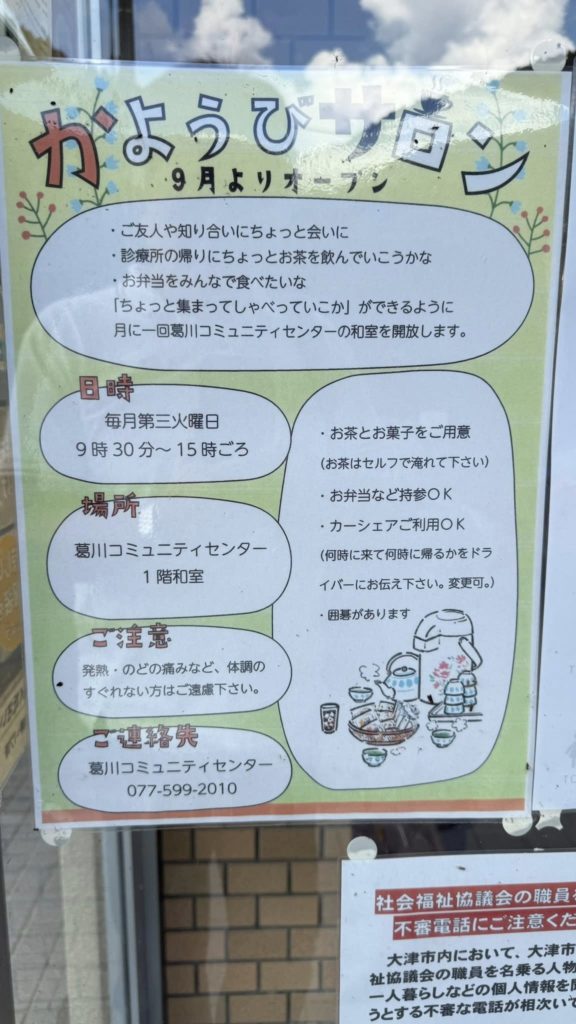 かようびサロン
9月よりオープン
・ご友人や知り合いにちょっと会いに
・診療所の帰りにちょっとお茶を飲んでいこうかな
・お弁当をみんなで食べたいな
「ちょっと集まってしゃべっていこか」ができるように
月に一回葛川コミュニティセンターの和室を開放します。
日時
毎月第三火曜日
9時30分～15時ごろ
場所
葛川コミュニティセンター
1階和室
ご注意
発熱・のどの痛みなど、体調の
すぐれない方はご遠慮下さい。
ご連絡先
葛川コミュニティセンター
077-599-2010
・お茶とお菓子をご用意
（お茶はセルフで淹れて下さい）
・お弁当など持参OK
・カーシェアご利用OK
（何時に来て何時に帰るかをドラ
イバーにお伝え下さい。変更可。）
・囲碁があります
社会福祉協議会の職員を
不審電話にご注意くだ
大津市内において、大津市
祉協議会の職員を名乗る人物
一人暮らしなどの個人情報を
うとする不審な電話が相次いで